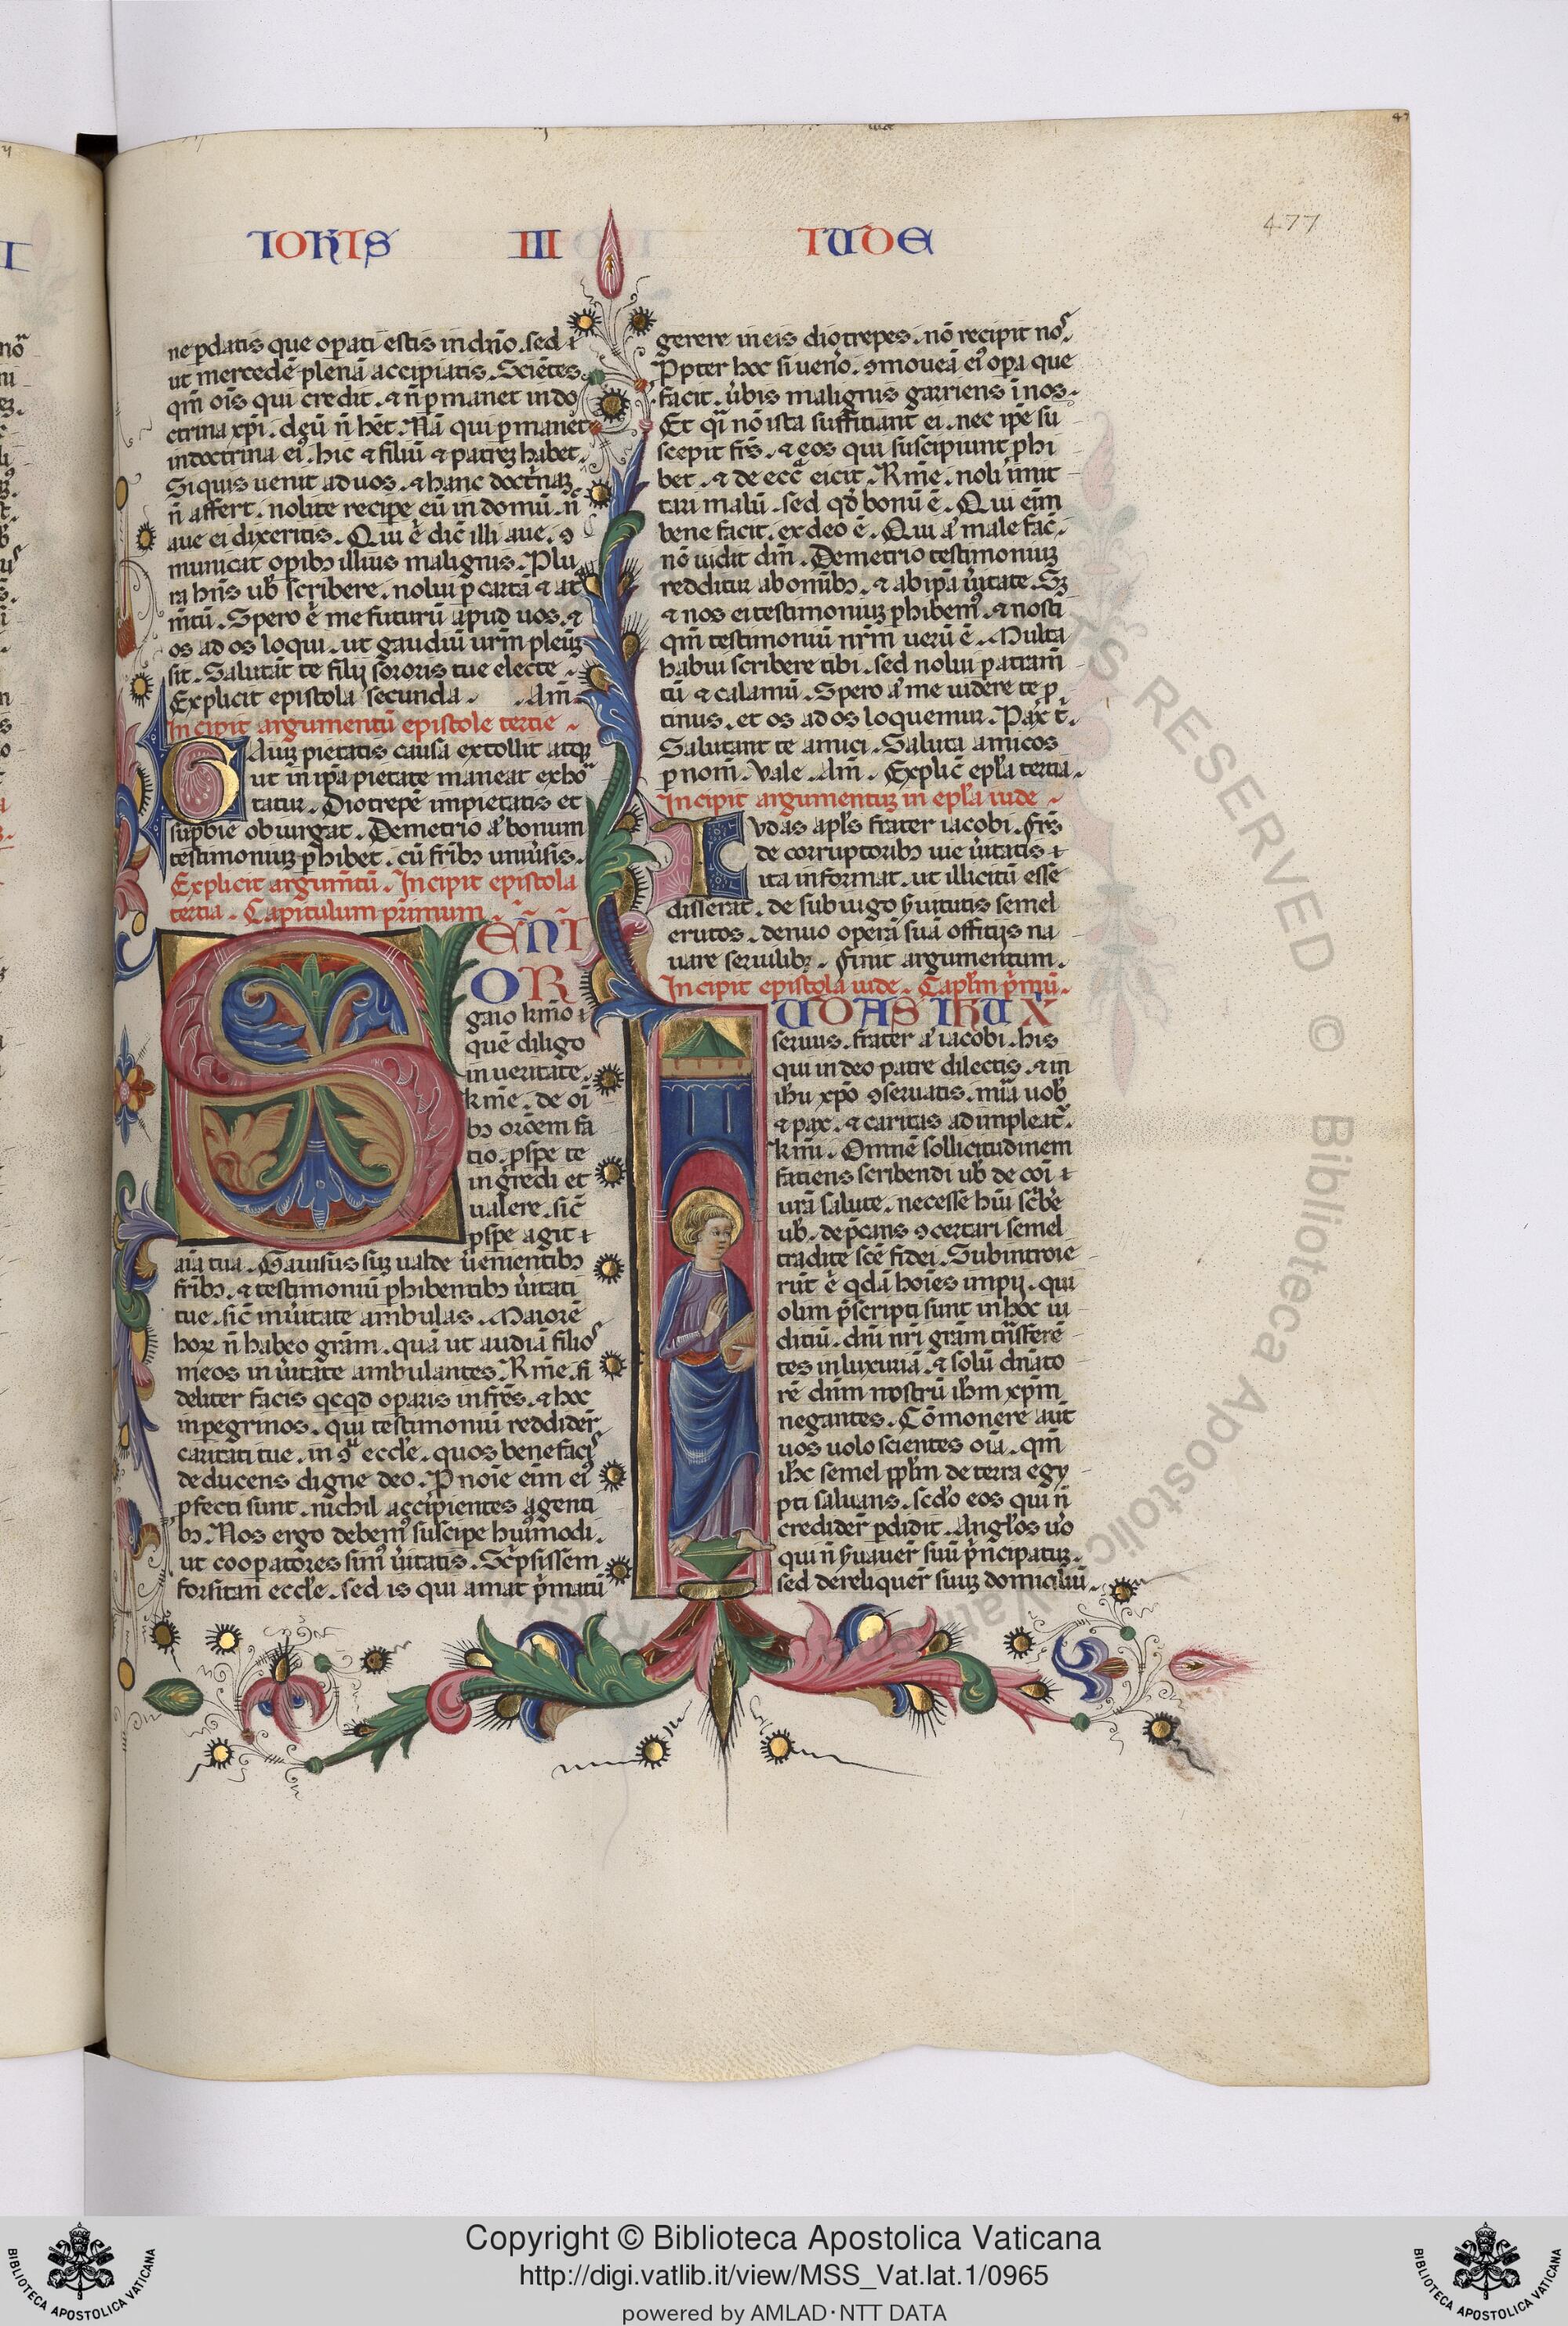 IOHIS III
IUDE
477
ne pdatis que opati estis in dn̄o . sed ⁊
ut mercedē plenā accipiatis . Sciētes
qm̄ oīs qui credit . ⁊ n̄ pmanet in do
ctrina xp̄i . deū n̄ hēt . Nā qui pmanet
in doctrina eiꝰ . hic ⁊ filiū ⁊ patreꝫ habet .
Siquis uenit ad uos . ⁊ hanc doct̉naꝫ
n̄ affert . nolite recipe eū in domū . n̄
aue ei dixeritis . Qui .n. dic̄ illi aue . ꝯ
municat opibꝫ illius malignis . Plu
ra hn̄s ub̉ scribere . nolui p cartā ⁊ at
m̄tū . Spero .n. me futurū apud uos . ⁊
os ad os loqui . ut gaudiū ur̄m pleūꝫ
sit . Salutāt te filij sororis tue electe .
Explicit epistola secunda . Am̄ .
Incipit argumentū epistole tertie
GAiuꝫ pietatis causa extollit atqꝫ
ut in ip̄a pietate maneat exho
tatur . Diotrepē impietatis et
supbie obiurgat . Demetrio aͥ bonum
testimoniuꝫ phibet . cū fr̄ibꝫ uniủsis .
Explicit argum̄tū . Incipit epistola
tertia . Capitulum primum
SENI
OR
gaio kmo ⁊
quē diligo
in ueritate .
kme . de oī
bꝫ oroēm fa
tio . pspe te
ingredi et
ualere . sic̄
pspe agit ⁊
aīa tua . Gauisus suꝫ ualde uenientibꝫ
fr̄ibꝫ . ⁊ testimoniū phibentibꝫ ủitati
tue . sic̄ in ủitate ambulas . Maiorē
hoꝝ n̄ habeo grām . quā ut audiā filios
meos in ủitate ambulantes . Kme . fi
deliter facis qcqd oparis in fr̄es . ⁊ hoc
in pegrinos . qui testimoniū reddider̄
caritati tue . in ꝯᵘ eccl̄e . quos benefacis
deducens digne deo . P noīe eim eiꝰ
pfecti sunt . nichil accipientes a genti
bꝫ . Nos ergo debemꝰ suscipe huiꝰmodi .
ut coopatores simꝰ ủitatis . Scpsissem
forsitan eccl̄e . sed is qui amat pmatū
gerere in eis diotrepes . nō recipit nos .
Ppter hoc si uenˀo . ꝯmoueā eiꝰ opa que
facit . ủbis malignis garriens ī nos .
Et qͣi nō ista suffitiant ei . nec ip̄e su
scepit fr̄s . ⁊ eos qui suscipiunt phi
bet . ⁊ de ecc̄ᵃ eicit . Kme . noli imit
tari malū . sed qd̄ bonū ē . Qui eim
bene facit . ex deo ē . Qui aͥ male fac̄ .
nō uidit dm̄ . Demetrio testimoniuꝫ
redditur ab omībꝫ . ⁊ ab ip̄a ủitate . Sꝫ
⁊ nos ei testimoniuꝫ phibemꝰ . ⁊ nosti
qm̄ testimoniū nr̄m uerū ē . Multa
habui scribere tibi . sed nolui p atram̄
tū ⁊ calamū . Spero aͥ me uidere te p
tinus . et os ad os loquemur . Pax t̄ .
Salutant te amici . Saluta amicos
p nom̄ . Vale . Am̄ . Explic̄ epl̄a tertia .
Incipit argumentuꝫ in epl̄a iude
IVdas apl̄s frater iacobi . fr̄s
de corruptoribꝫ uie ủitatis ⁊
ita informat . ut illicitū esse
disserat . de sub iugo s̉uitutis semel
erutos . denuo operā suā offitijs na
uare seruilibꝫ . finit argumentum .
Incipit epistola iude . Caplm̄ pͥmū .
IUDAS IHU X
seruus . frater aͥ iacobi . his
qui in deo patre dilectis . ⁊ in
ihū xpō ꝯseruatis . mīa uob̉
⁊ pax . ⁊ caritas adimpleat̉ .
kmi . Omnē sollicitudinem
fatiens scribendi ub̉ de coī ⁊
urā salute . necesse hūi scbe
ub̉ . depcans ꝯcertari semel
tradite scē fidei . Subintroie
rūt .n. qdā hoīes impij . qui
olim pscripti sunt in hoc iu
ditiū . dn̄i nr̄i grām tn̄sferē
tes in luxuriā . ⁊ solū dn̄ato
rē dn̄m nostrū ihm̄ xpm̄
negantes . Cōmonere aut̄
uos uolo scientes oīa . qm̄
ihc̄ semel pplm̄ de terra egy
pti saluans . scd̉o eos qui n̄
credider̄ pdidit . Angl̄os uͦo
qui n̄ s̉uauer̄ suū pͥncipatuꝫ .
sed dereliquer̄ suuꝫ domiciliū .
RIGHTS RESERVED © Biblioteca Apostolica Vaticana
Copyright © Biblioteca Apostolica Vaticana
http://digi.vatlib.it/view/MSS_Vat.lat.1/0965
powered by AMLAD·NTT DATA
BIBLIOTECA APOSTOLICA VATICANA
BIBLIOTECA APOSTOLICA VATICANA